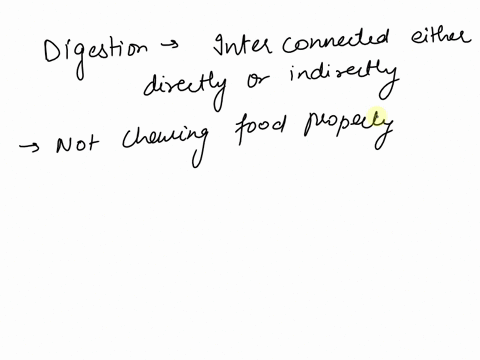 Digestion → Inter connected either
directly or indirectly
→ Not chewing food property